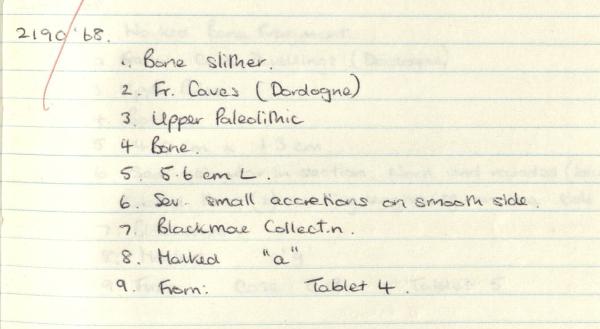 2190/'68.
1. Bone slither.
2. Fr. Caves (Dordogne)
3. Upper Paleolithic
4 Bone.
5. 5.6 cm L.
6. Sev. small accretions on smooth side.
7. Blackmore Collect.n.
8. Marked "a"
9. From: Tablet 4.